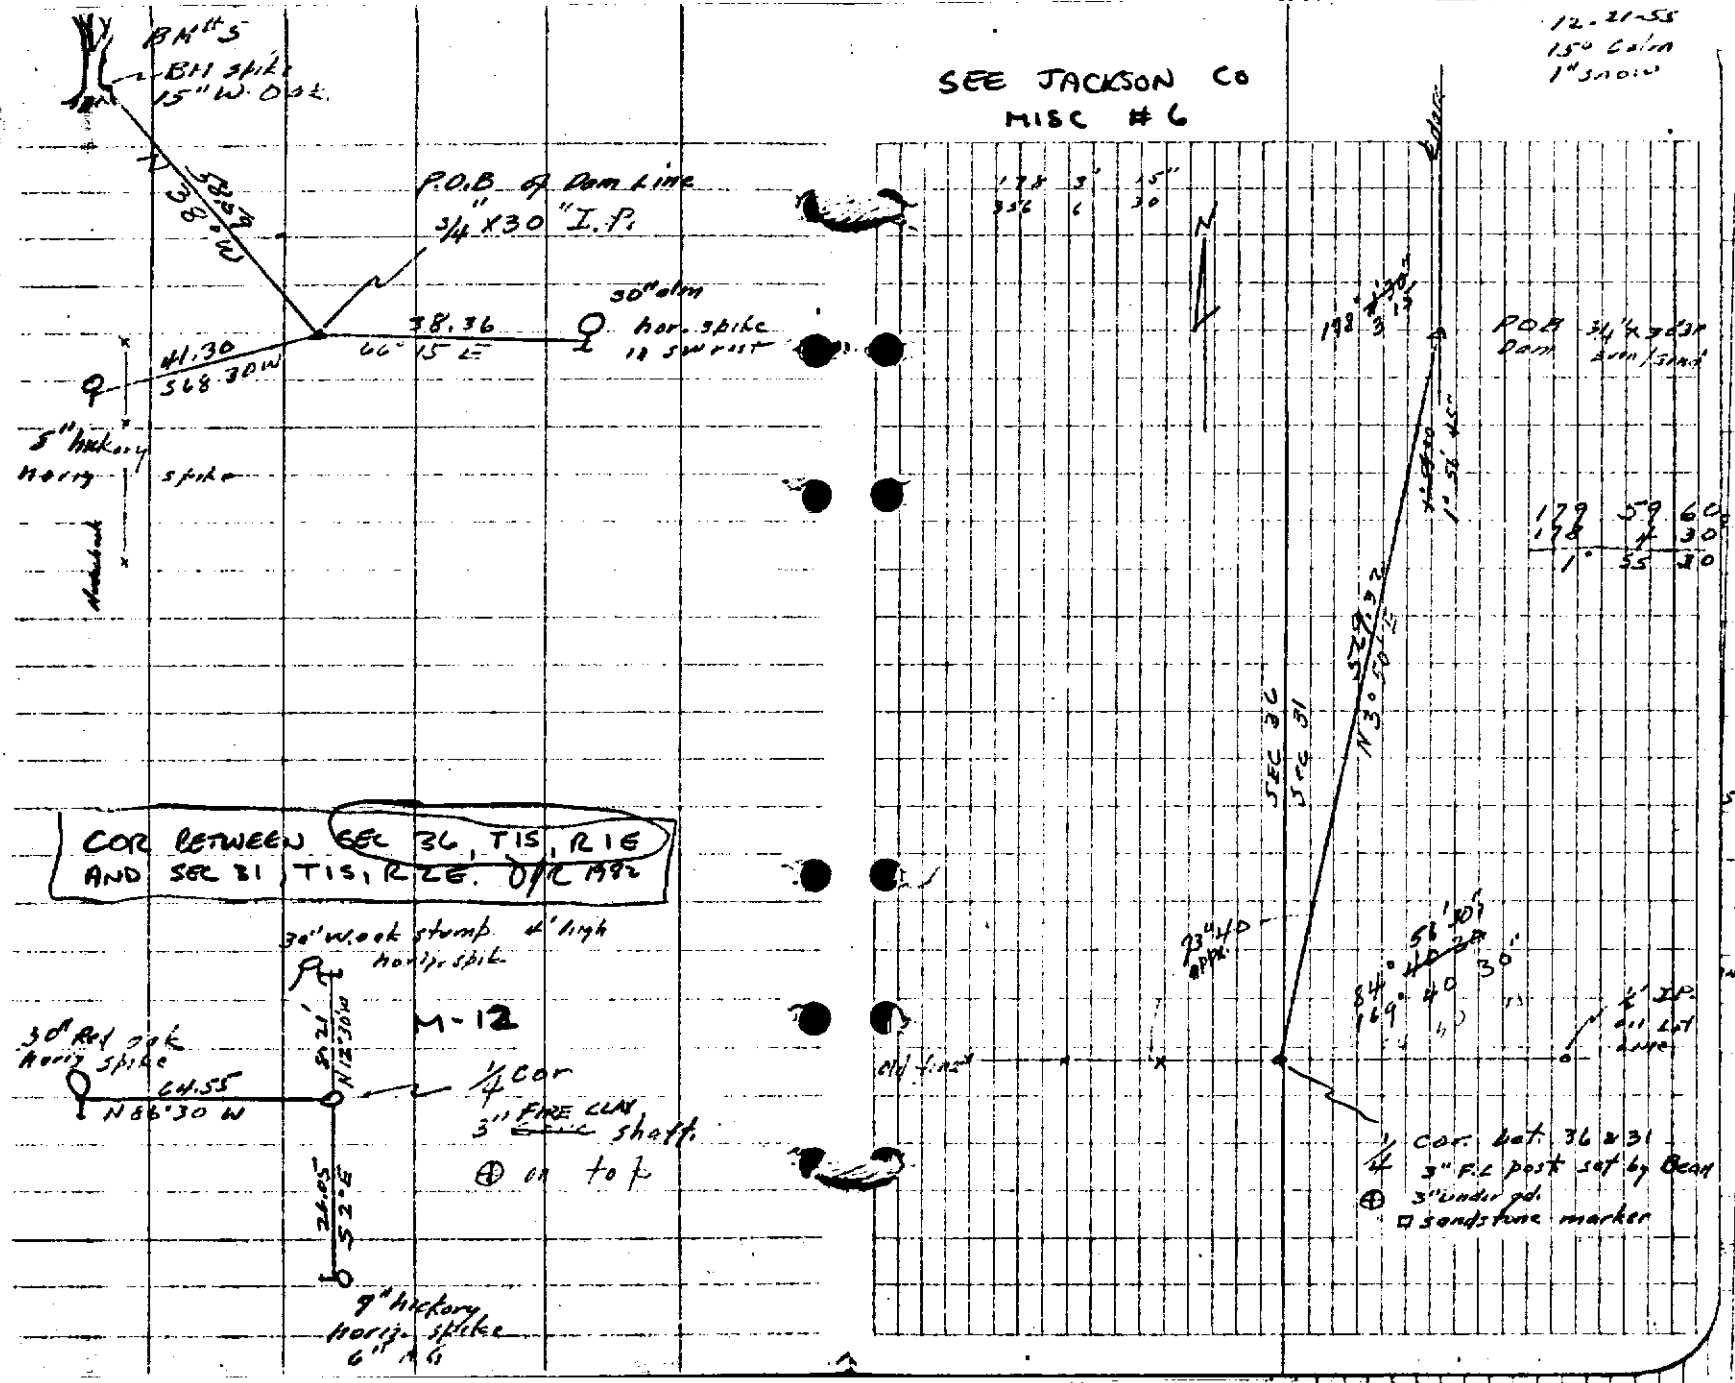 BM#5
BM spike
15" W. Oak.
58.59
38° W
P.O.B. of Dam Line
3/4" X 30" I.P.
38.36
66° 15 E
30" elm
hor. spike
in SW root
41.30
S68.30W
5" hickory
horiz spike
COR BETWEEN SEC 36, T1S, R1E
AND SEC 31, T1S, R2E. 1982
30" W. oak stump 4' high
horiz. spike
M-12
8.21'
N12°30'W
30" Red oak
horiz spike
64.55
N 86°30 W
1/4 cor
3" FIRE CLAY shaft.
⊕ on top
26.05
S 2° E
9" hickory
horiz. spike
6"
12-21-55
15° Calm
1" snow
SEE JACKSON CO
MISC # 6
178 3' 15"
356 6 30
N
178°
3' 15"
POB 3/4" X
Dam
1° 56' 45"
179 59 60
178 4 30
1° 55 30
529.32
N 3° 50' E
SEC 36
SEC 31
93°40
appx.
56' 30"
84° 40 20
169° 40 30"
old fence
I.P.
1/4 cor. bet. 36 & 31
3" F.C post set by Bean
⊕ 3" under gd.
□ sandstone marker